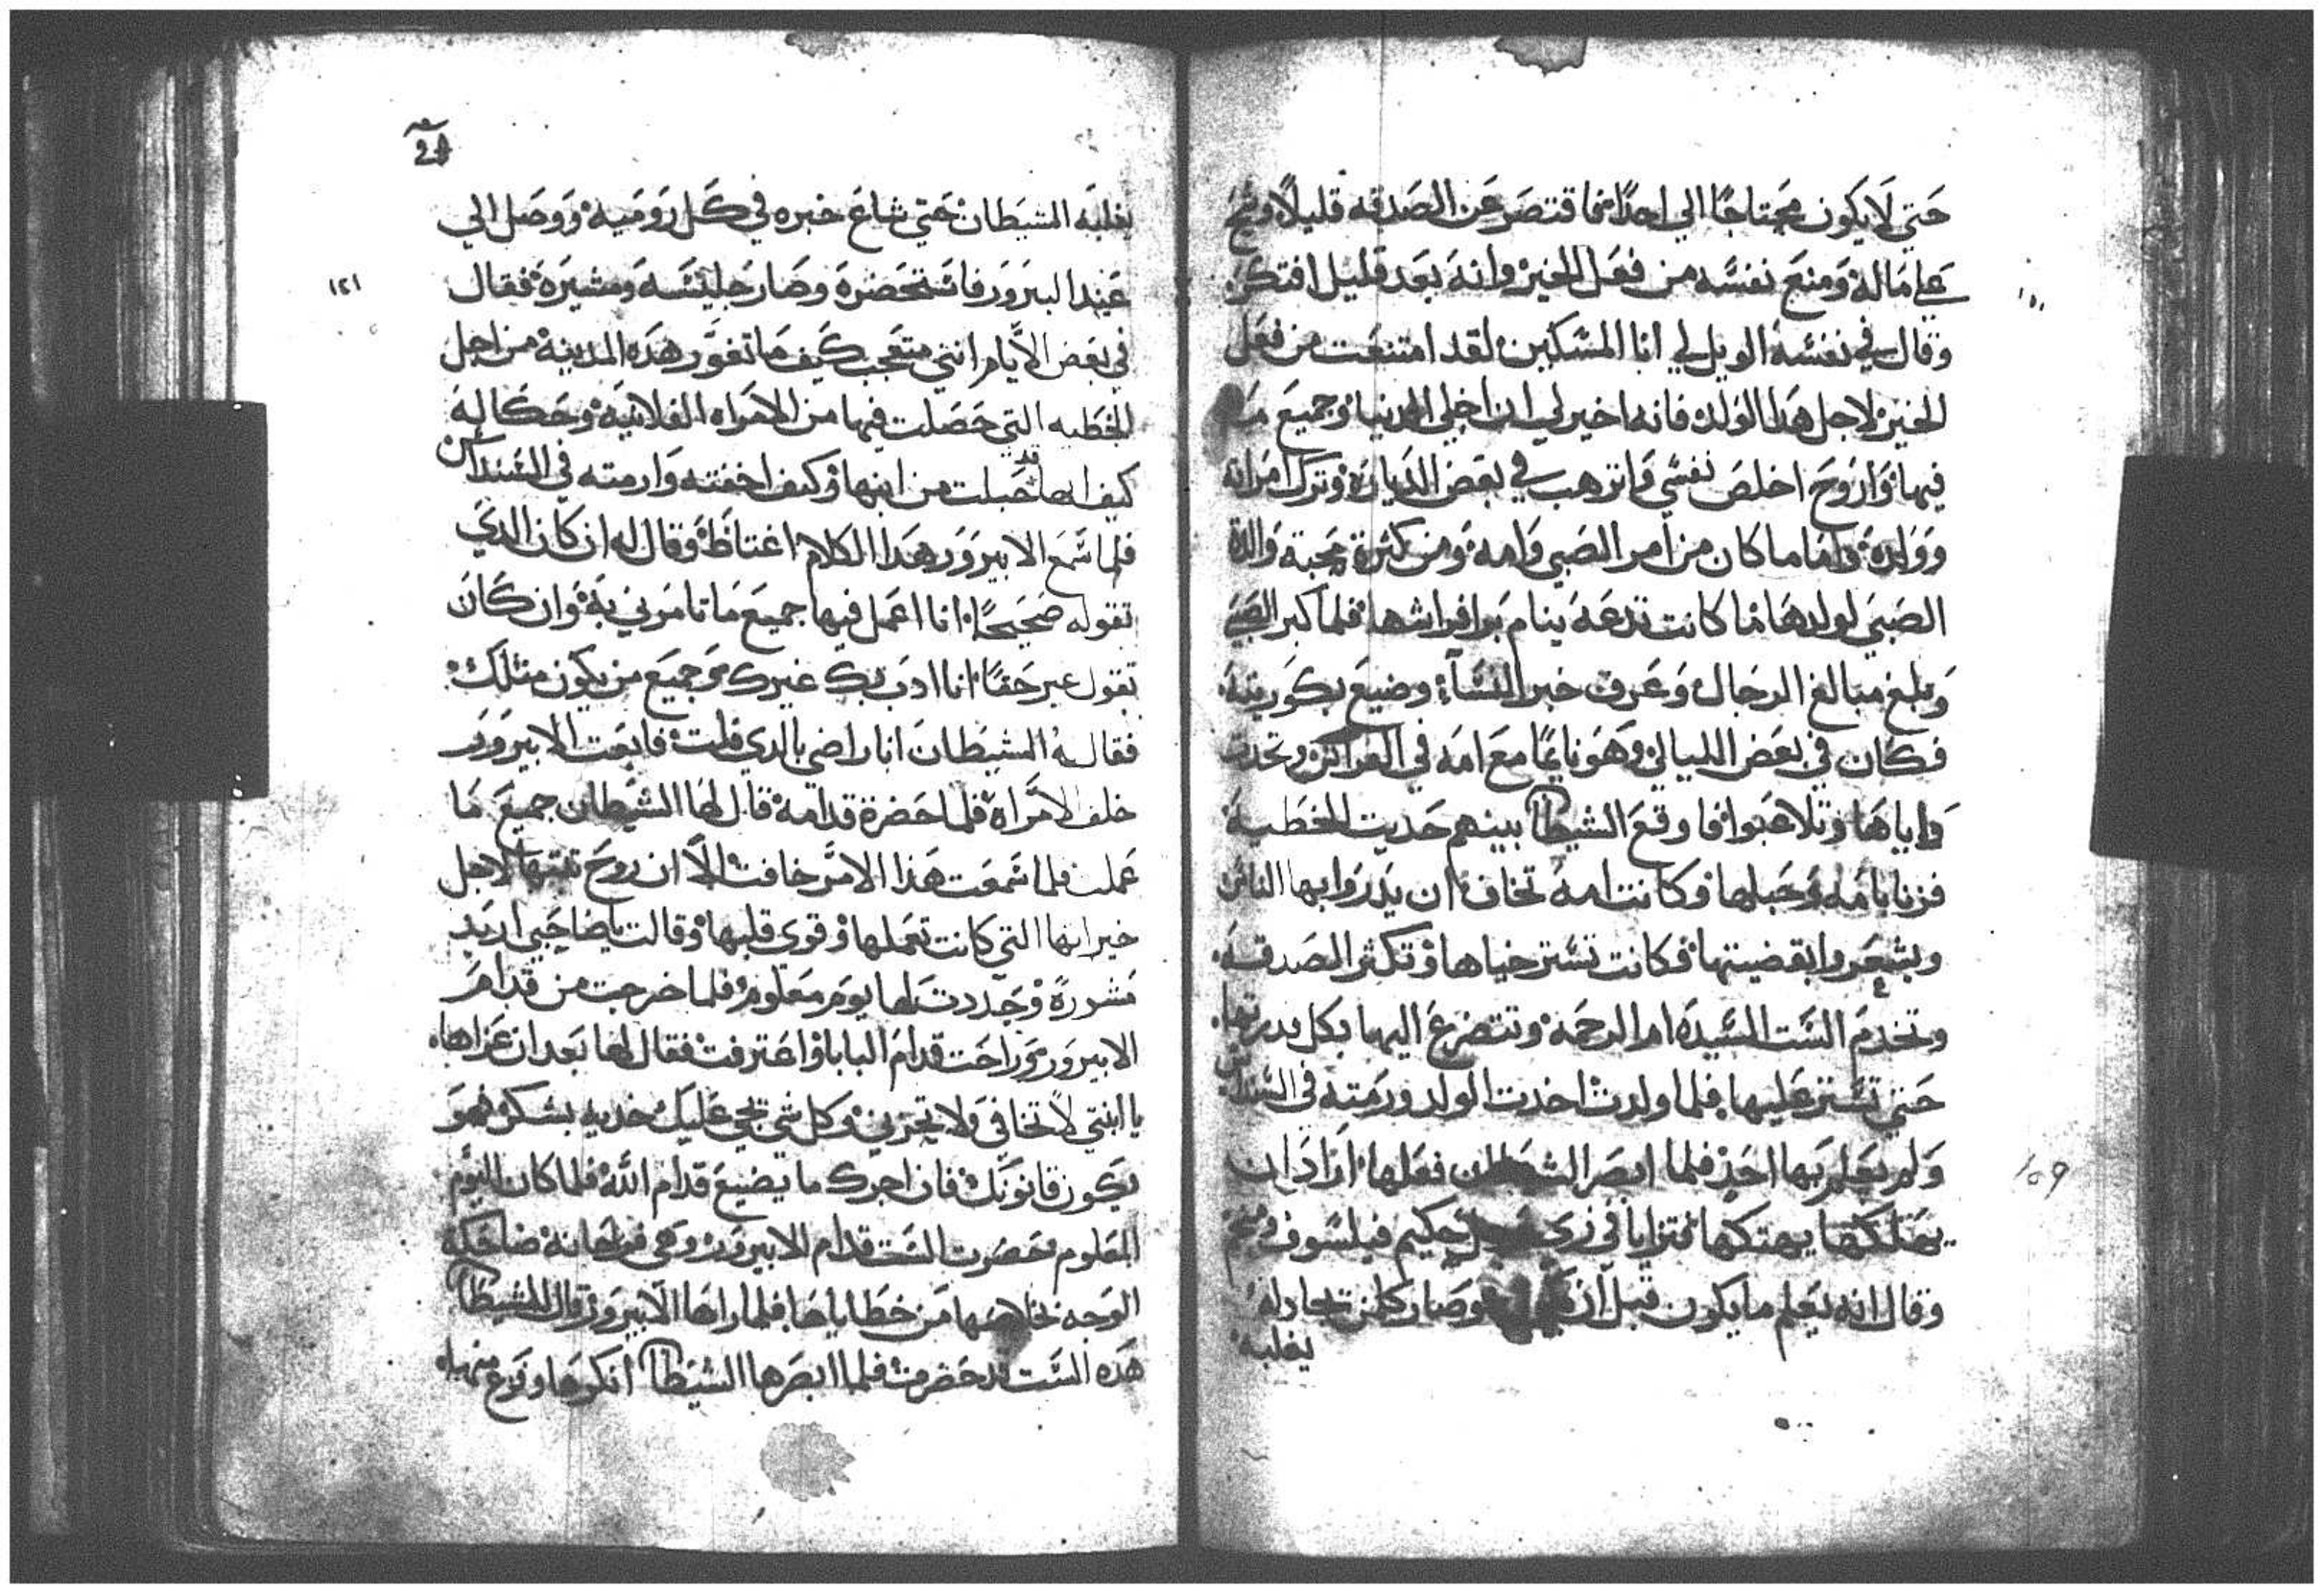 حتي لا يكون محتاجًا الي احدًا فاقتصر عن الصدقه قليلًا وشح
علي ماله ومنع نفسه من فعل الخير وانه بعد قليل افتكر
وقال في نفسه الويل لي انا المسكين لقد امتنعت من فعل
الخير لاجل هدا الولد فانه اخير لي ان اخلي الدنيا وجميع ما
فيها واروح اخلص نفسي واترهب في بعض الديارة وترك امراته
وولده واما ما كان من امر الصبي وامه ومن كثرة محبة والدة
الصبي لولدها ما كانت تدعه ينام برا فراشها فلما كبر الصبي
وبلغ مبالغ الرجال وعرف خبر النساء وضيع بكوريته
فكان في بعض الليالي وهو نايمًا مع امه في الفراش وتحدت
واياها وتلاعبوا فاوقع الشيطان بينهم حديت الخطية
فزنا بامه وحبلها وكانت امه تخاف ان يدروا بها الناس
ويشعروا بقضيتها فكانت تستر حياها وتكثر الصدقه
وتخدم الست السيده ام الرحمه وتتضرع اليها بكل قدرتها
حتي تستر عليها فلما ولدت اخدت الولد ورمته في السنداس
ولم يعلم بها احد فلما ابصر الشيطان فعلها اراد ان
يهلكها يهتكها فتزايا في زي حكيم فيلسوف ومنجم
وقال انه يعلم ما يكون قبل ان وصار كلمن تجادله
يغلبه
2
يغلبه الشيطان حتي شاع خبره في كل روميه ووصل الي
عند البرور فاستحضره وصار جليسه ومشيره فقال
١٢١
في بعض الايام انني متعجب كيف ما تغور هده المدينه من اجل
الخطيه التي حصلت فيها من الامراه الفلانيه وحكا له
كيف انها قد حبلت من ابنها وكيف اخفته وارمته في السنداس
فلما سمع الابيرور هدا الكلام اغتاظ وقال له ان كان الدي
تقوله صحيحًا انا اعمل فيها جميع ما تامرني به وان كان
تقول غير حقًا انا ادب بك غيرك وجميع من يكون متلك
فقال له الشيطان انا راضي بالدي قلت فابعت الابيرور
خلف الامراه فلما حضرة قدامه قال لها الشيطان جميع ما
عملت فلما سمعت هذا الامر خافت الا ان روح لاجل
خيراتها التي كانت تعملها وقوي قلبها وقالت يا صاحبي اريد
مشورة وحددت لها يوم معلوم فلما خرجت من قدام
الابيرور وراحت قدام البابا واعترفت فقال لها بعد ان عزاها
يا ابنتي لا تخافي ولا تحزني وكل شي يجي عليك خديه بشكر فهو
يكون قانونك فان اجرك ما يضيع قدام الله فلما كان اليوم
المعلوم حضرت الست قدام الابيرور وهي فرحانه ضاحكة
الوجه بخلاصها من خطاياها فلما راها الابيرور قال للشيطان
هده الست قد حضرت فلما ابصرها الشيطان انكرها وفزع منها